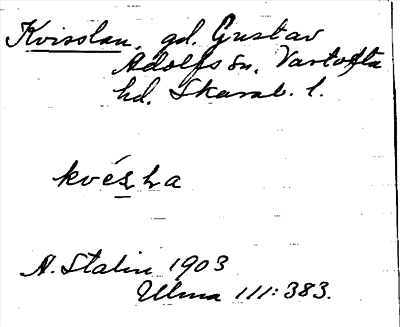 Kvisslan, gd. Gustav
Adolfs sn, Vartofta
hd. Skarab. l.
kvésla
A. Stalin 1903
Ulma 111:383.